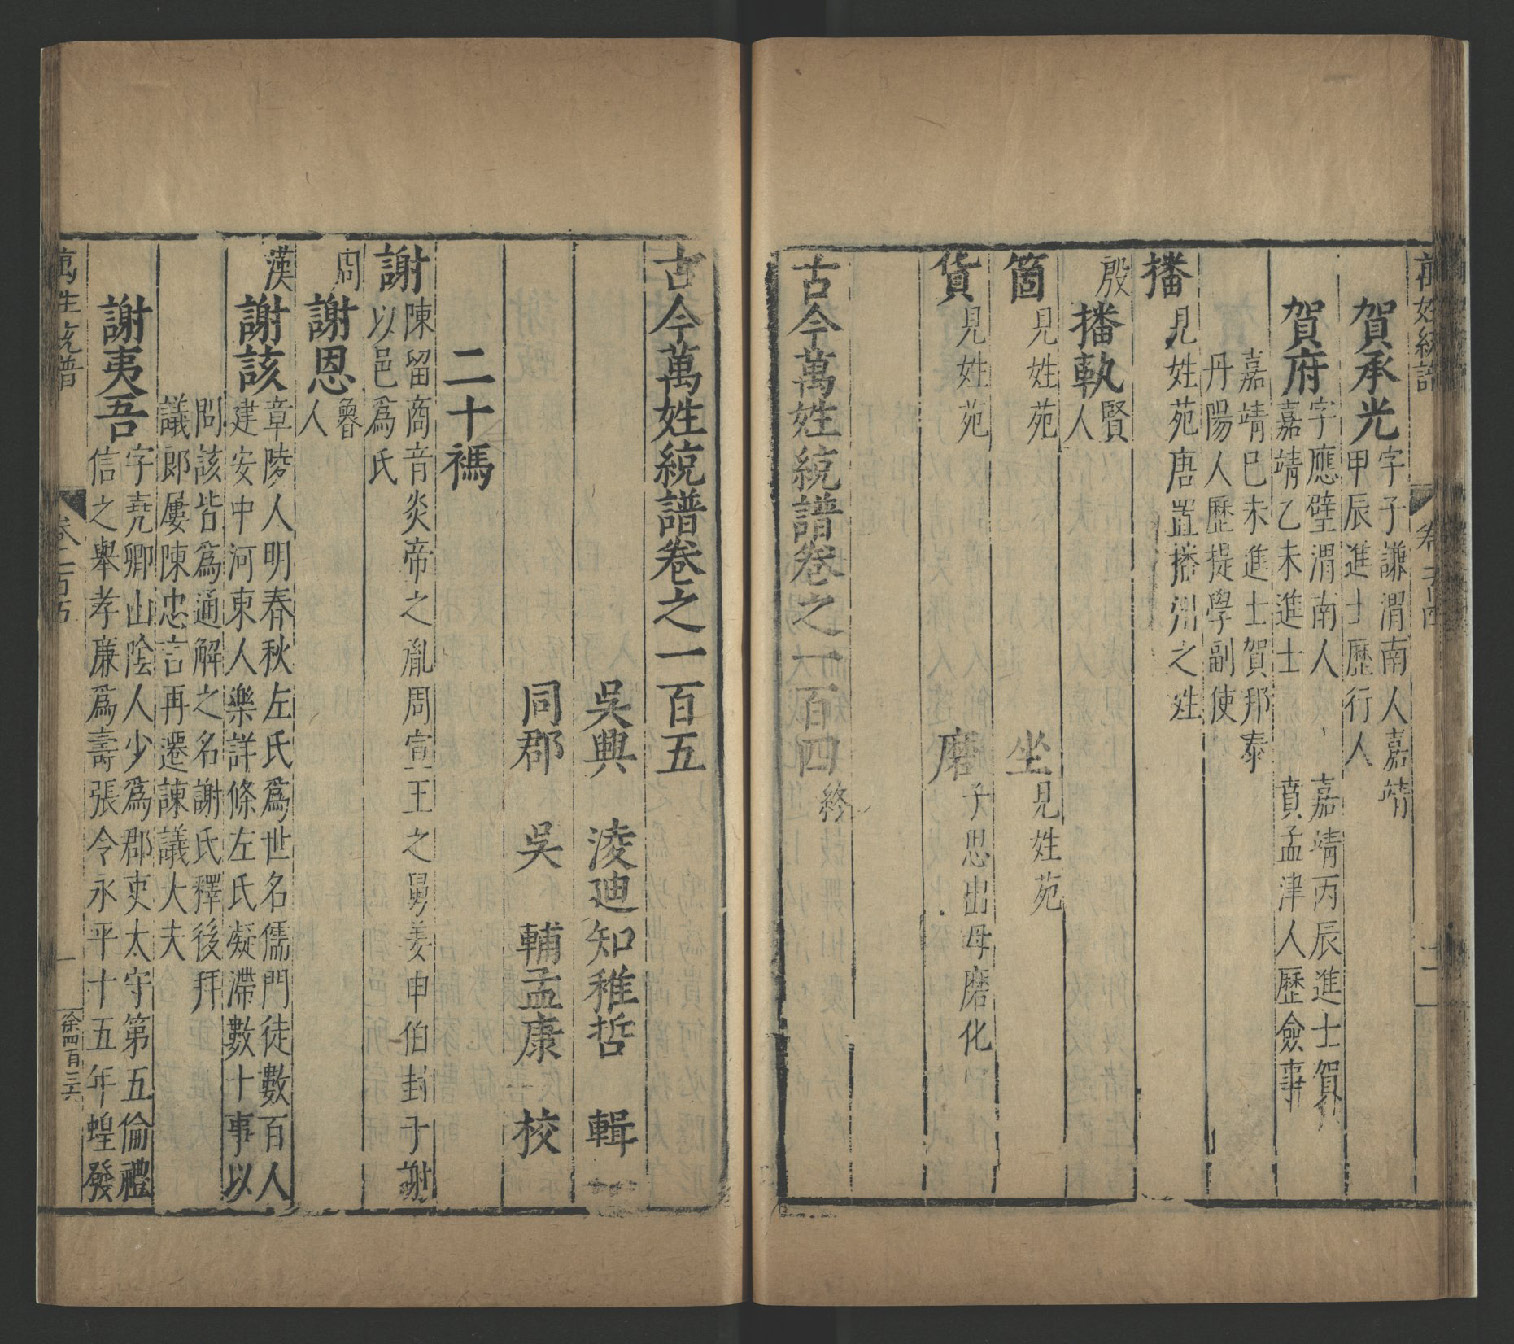 萬姓統譜
卷一百四
二
賀承光字子謙渭南人嘉靖
甲辰進士歷行人
賀府字應璧渭南人
嘉靖丙辰進士賀
嘉靖乙未進士
賁孟津人歷僉事
嘉靖己未進士賀邦泰
丹陽人歷提學副使
播見姓苑唐置播州之姓
殷
播執賢
人
箇見姓苑
坐見姓苑
貨見姓苑
磨子思出母磨化
古今萬姓統譜卷之一百四終
古今萬姓統譜卷之一百五
吳興 淩迪知稚哲 輯
同郡 吳 輔孟康 校
二十禡
謝陳留商音炎帝之胤周宣王之舅姜申伯封于謝
以邑爲氏
周
謝恩魯
人
漢
謝該章陵人明春秋左氏爲世名儒門徒數百人
建安中河東人樂詳條左氏凝滯數十事以
問該皆爲通解之名謝氏釋後拜
議郎屢陳忠言再遷諫議大夫
謝夷吾字堯卿山陰人少爲郡吏太守第五倫禮
信之舉孝廉爲壽張令永平十五年蝗發
萬姓統譜
卷一百五
一
余四百三六